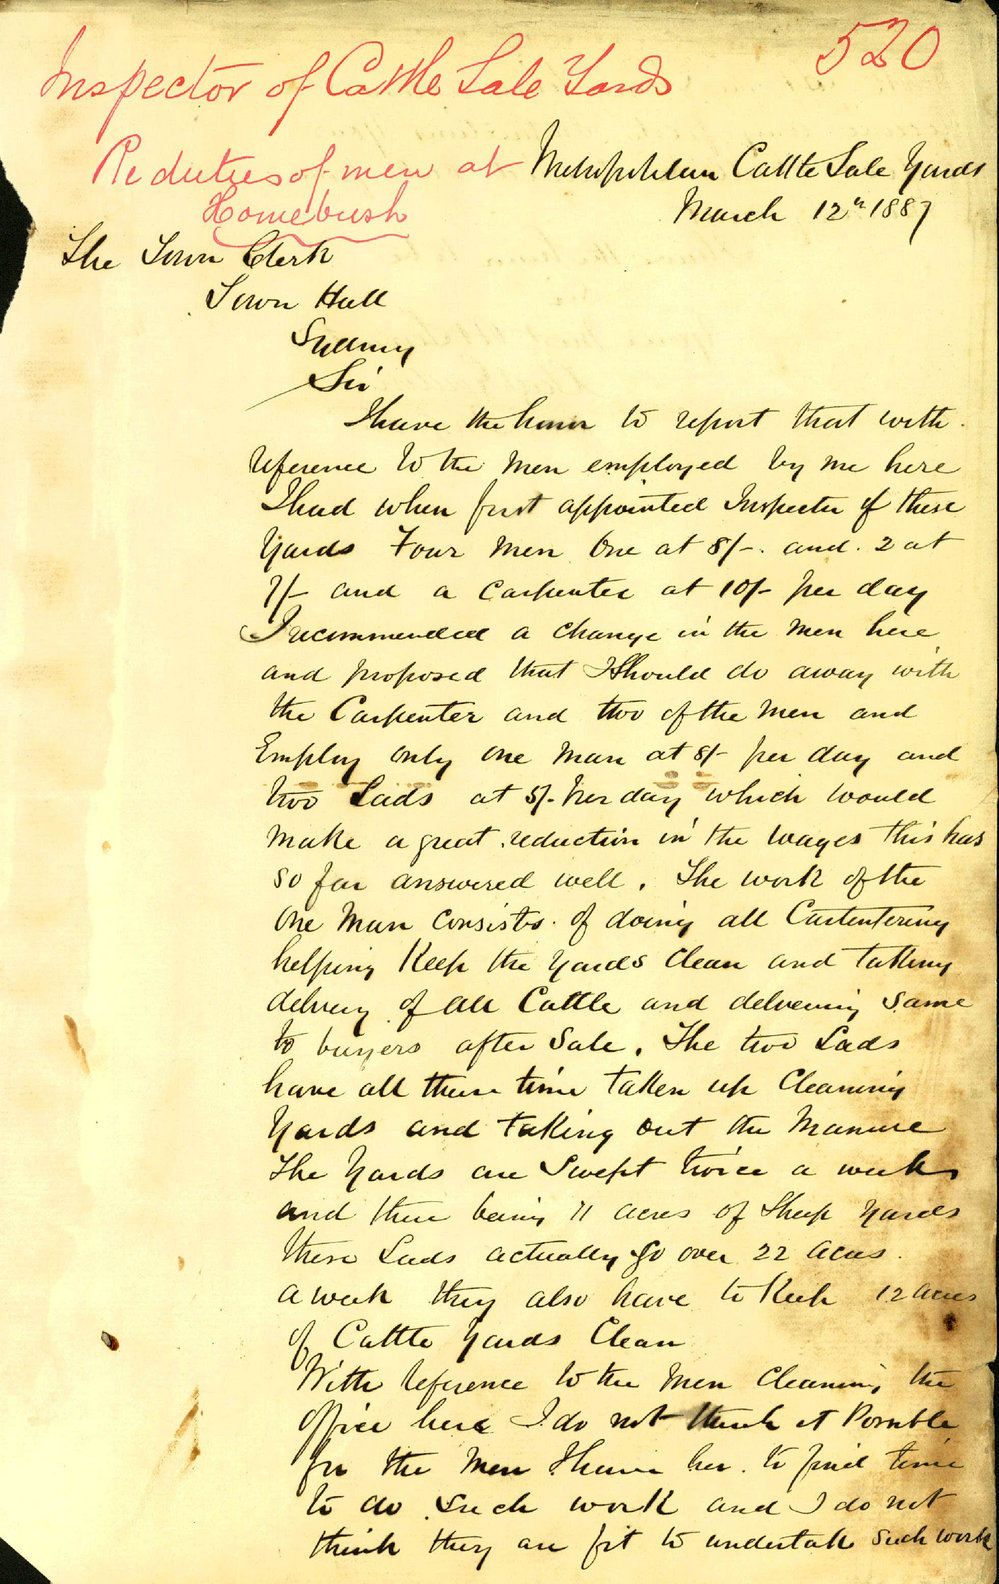 520
Inspector of Cattle Sale Yards
Re duties of men at
Homebush
Metropolitan Cattle Sale Yards
March 12th 1887
The Town Clerk
Town Hall
Sydney
Sir
I have the honor to report that with
reference to the men employed by me here
I had when first appointed Inspector of these
Yards Four men One at 8/-. and. 2 at
7/- and a Carpenter at 10/- per day
I recommended a change in the men here
and proposed that I Should do away with
the Carpenter and two of the men and
Employ only one man at 8/- per day and
two Lads at 5/- per day which would
make a great reduction in the wages this has
so far answered well. The work of the
one man consists of doing all Carpentering
helping Keep the yards Clean and taking
delivery of all Cattle and delivering same
to buyers after Sale. The two Lads
have all their time taken up Cleaning
Yards and taking out the Manure
The Yards are Swept twice a week
and there being 11 acres of Sheep Yards
these Lads actually go over 22 acres.
a week they also have to Keep 12 acres
of Cattle Yards Clean
With reference to the men Cleaning the
office here I do not think it Possible
for the men I have here to find time
to do such work and I do not
think they are fit to undertake such work